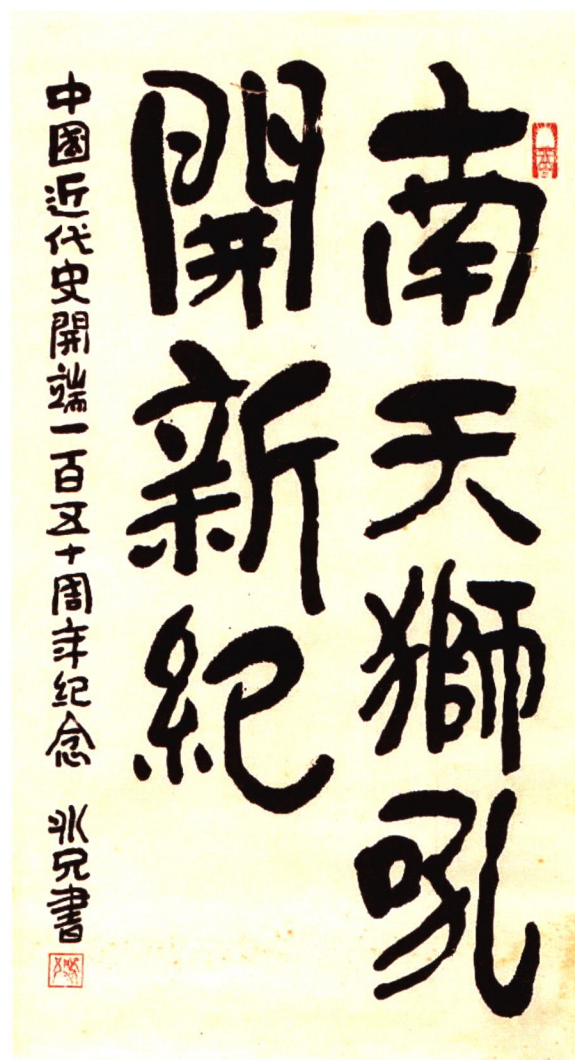 南天獅吼
開新紀
中國近代史開端一百五十周年紀念 氷兄書